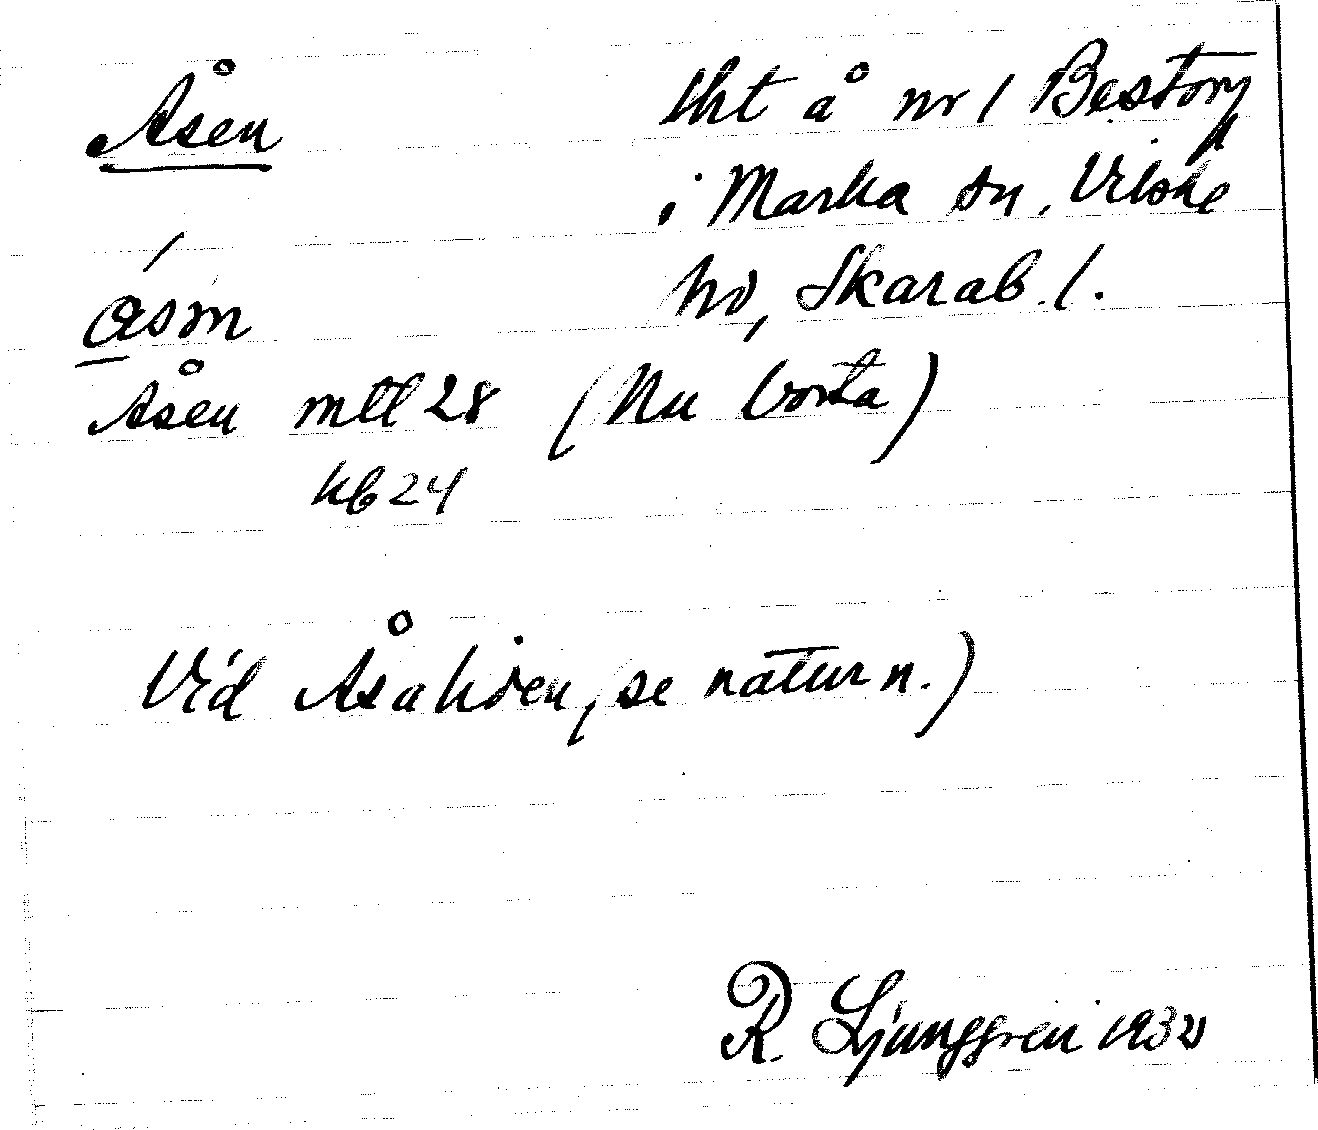 Åsen
tht å nr 1 Bestorp
i Marka sn, Vilske
hd, Skarab. l.
åsm
Åsen mtl 28 (Nu borta)
kb 24
Vid Åsahöen, se naturn.)
R Ljunggren 1932